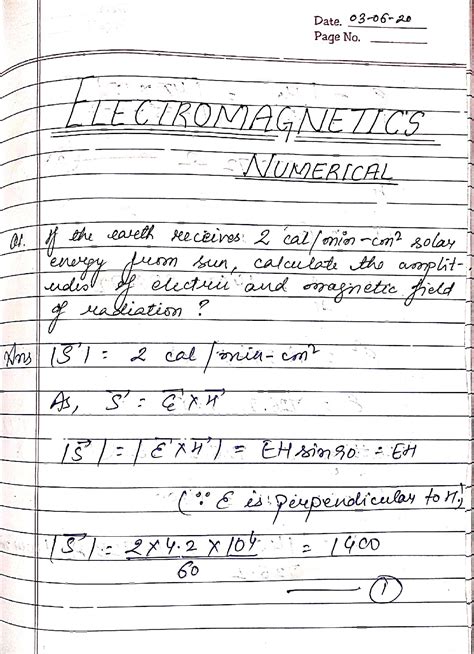 Date. 03-06-20
Page No.
ELECTROMAGNETICS
NUMERICAL
Q1. If the earth receives 2 cal/min-cm² solar
energy from sun, calculate the amplit-
udes of electric and magnetic field
of radiation ?
Ans |S⃗| = 2 cal/min-cm²
As, S⃗ = E⃗ × H⃗
|S⃗| = |E⃗ × H⃗| = EH sin 90 = EH
(∵ E is perpendicular to H)
|S⃗| = 2 × 4.2 × 10⁴ = 1400
60
①